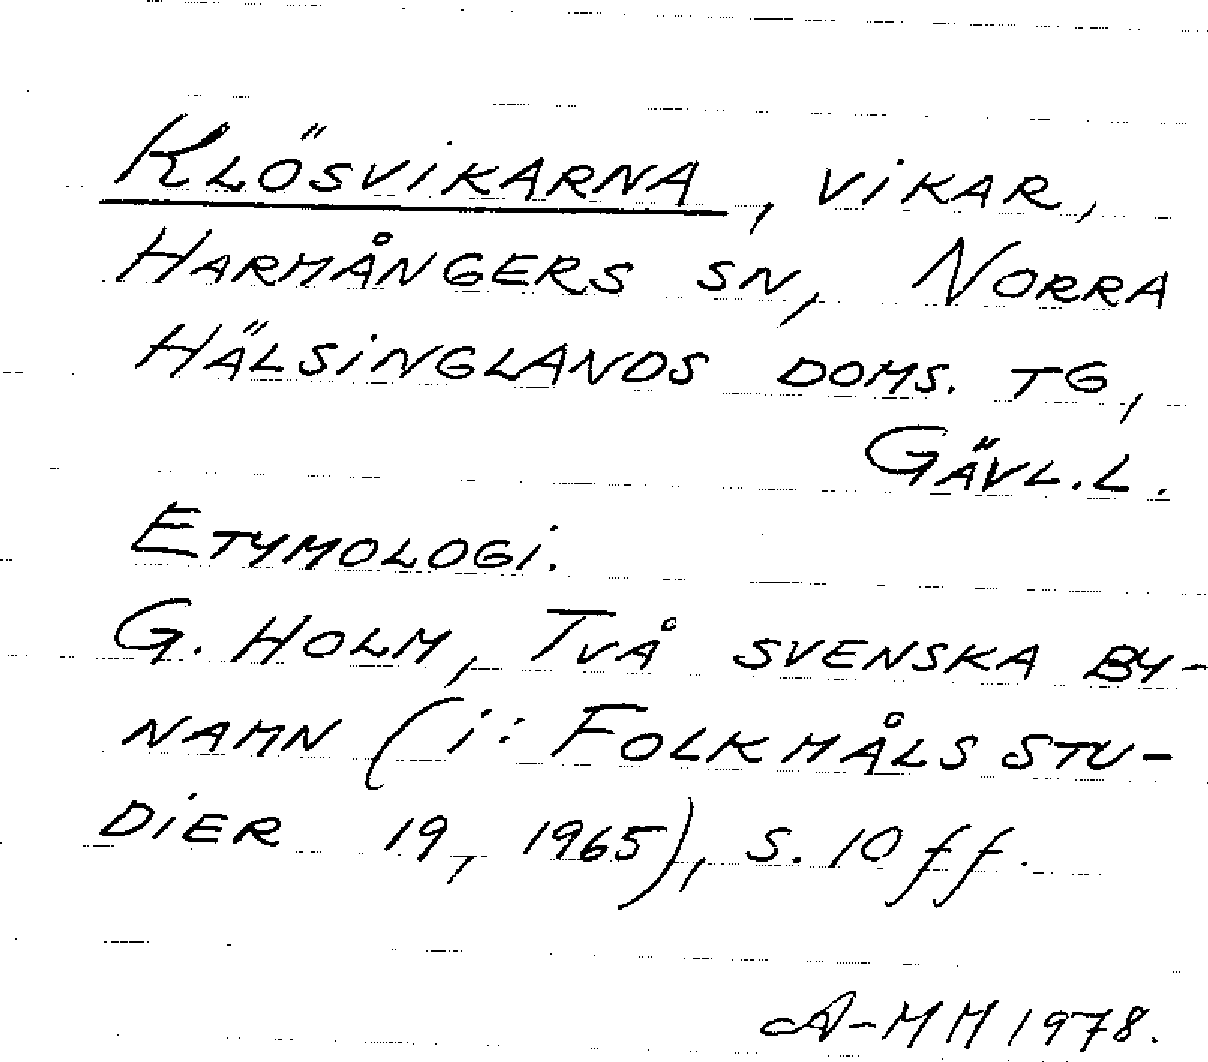 Klösvikarna, vikar,
Harmångers sn, Norra
Hälsinglands doms. tg,
Gävl.l.
Etymologi.
G. Holm, Två svenska by-
namn (i: Folkmålsstu-
dier 19, 1965), s. 10 ff.
A-MM 1978.